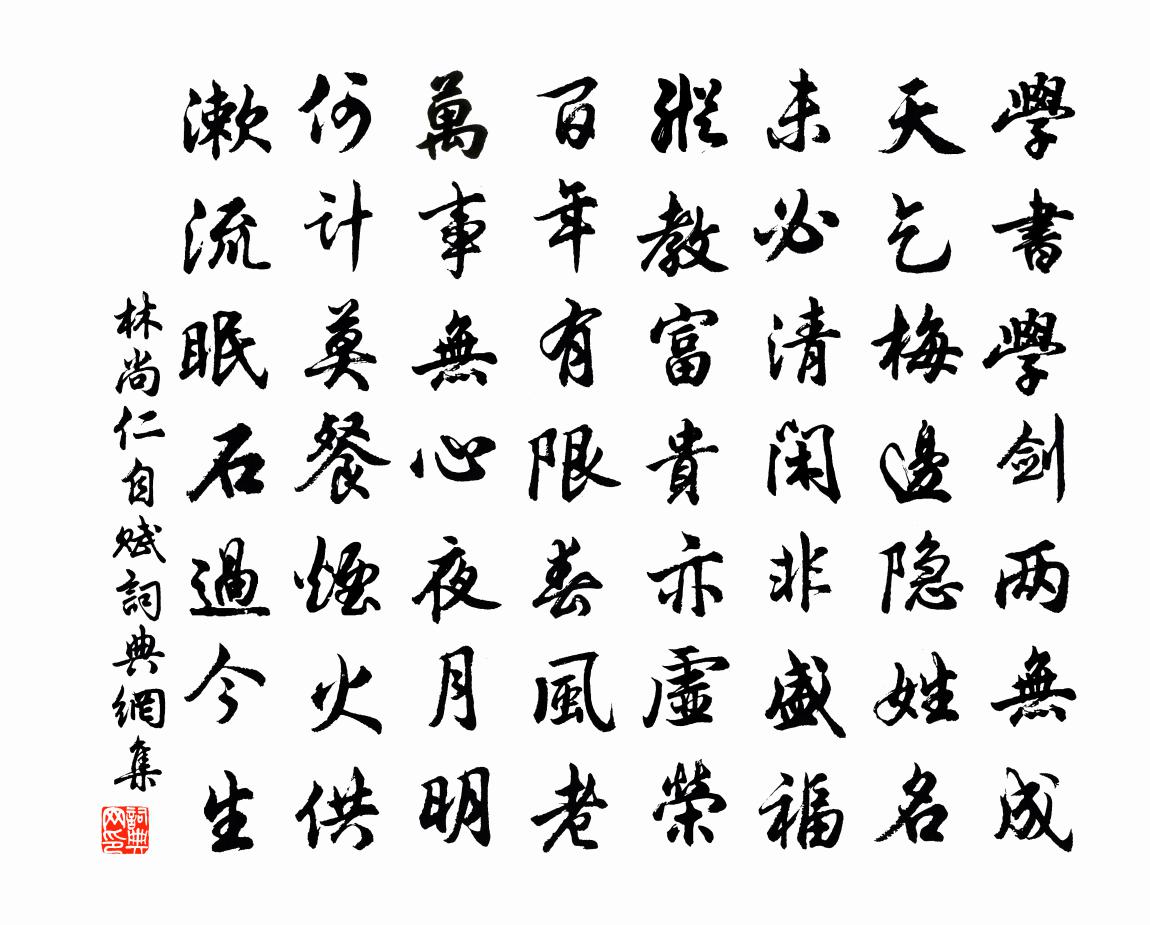 學書學劍两無成
天乞梅邊隐姓名
未必清閑非盛福
縱教富貴亦虛榮
百年有限春風老
萬事無心夜月明
何計莫餐煙火供
漱流眠石過今生
林尚仁自賦詞典網集
詞典网印